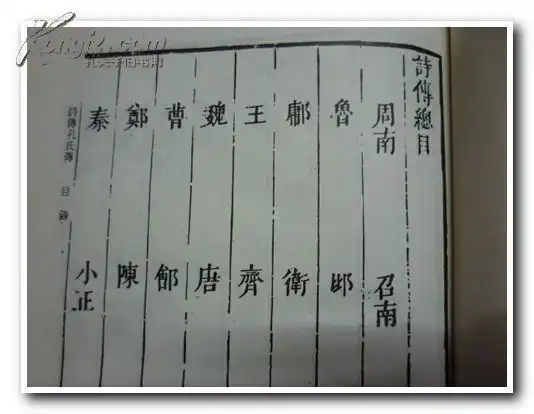 詩傳總目
周南 召南
魯 邶
鄘 衛
王 齊
魏 唐
曹 鄶
鄭 陳
秦 小正
詩傳孔氏傳 目錄
Kongfz.com
孔夫子旧书网